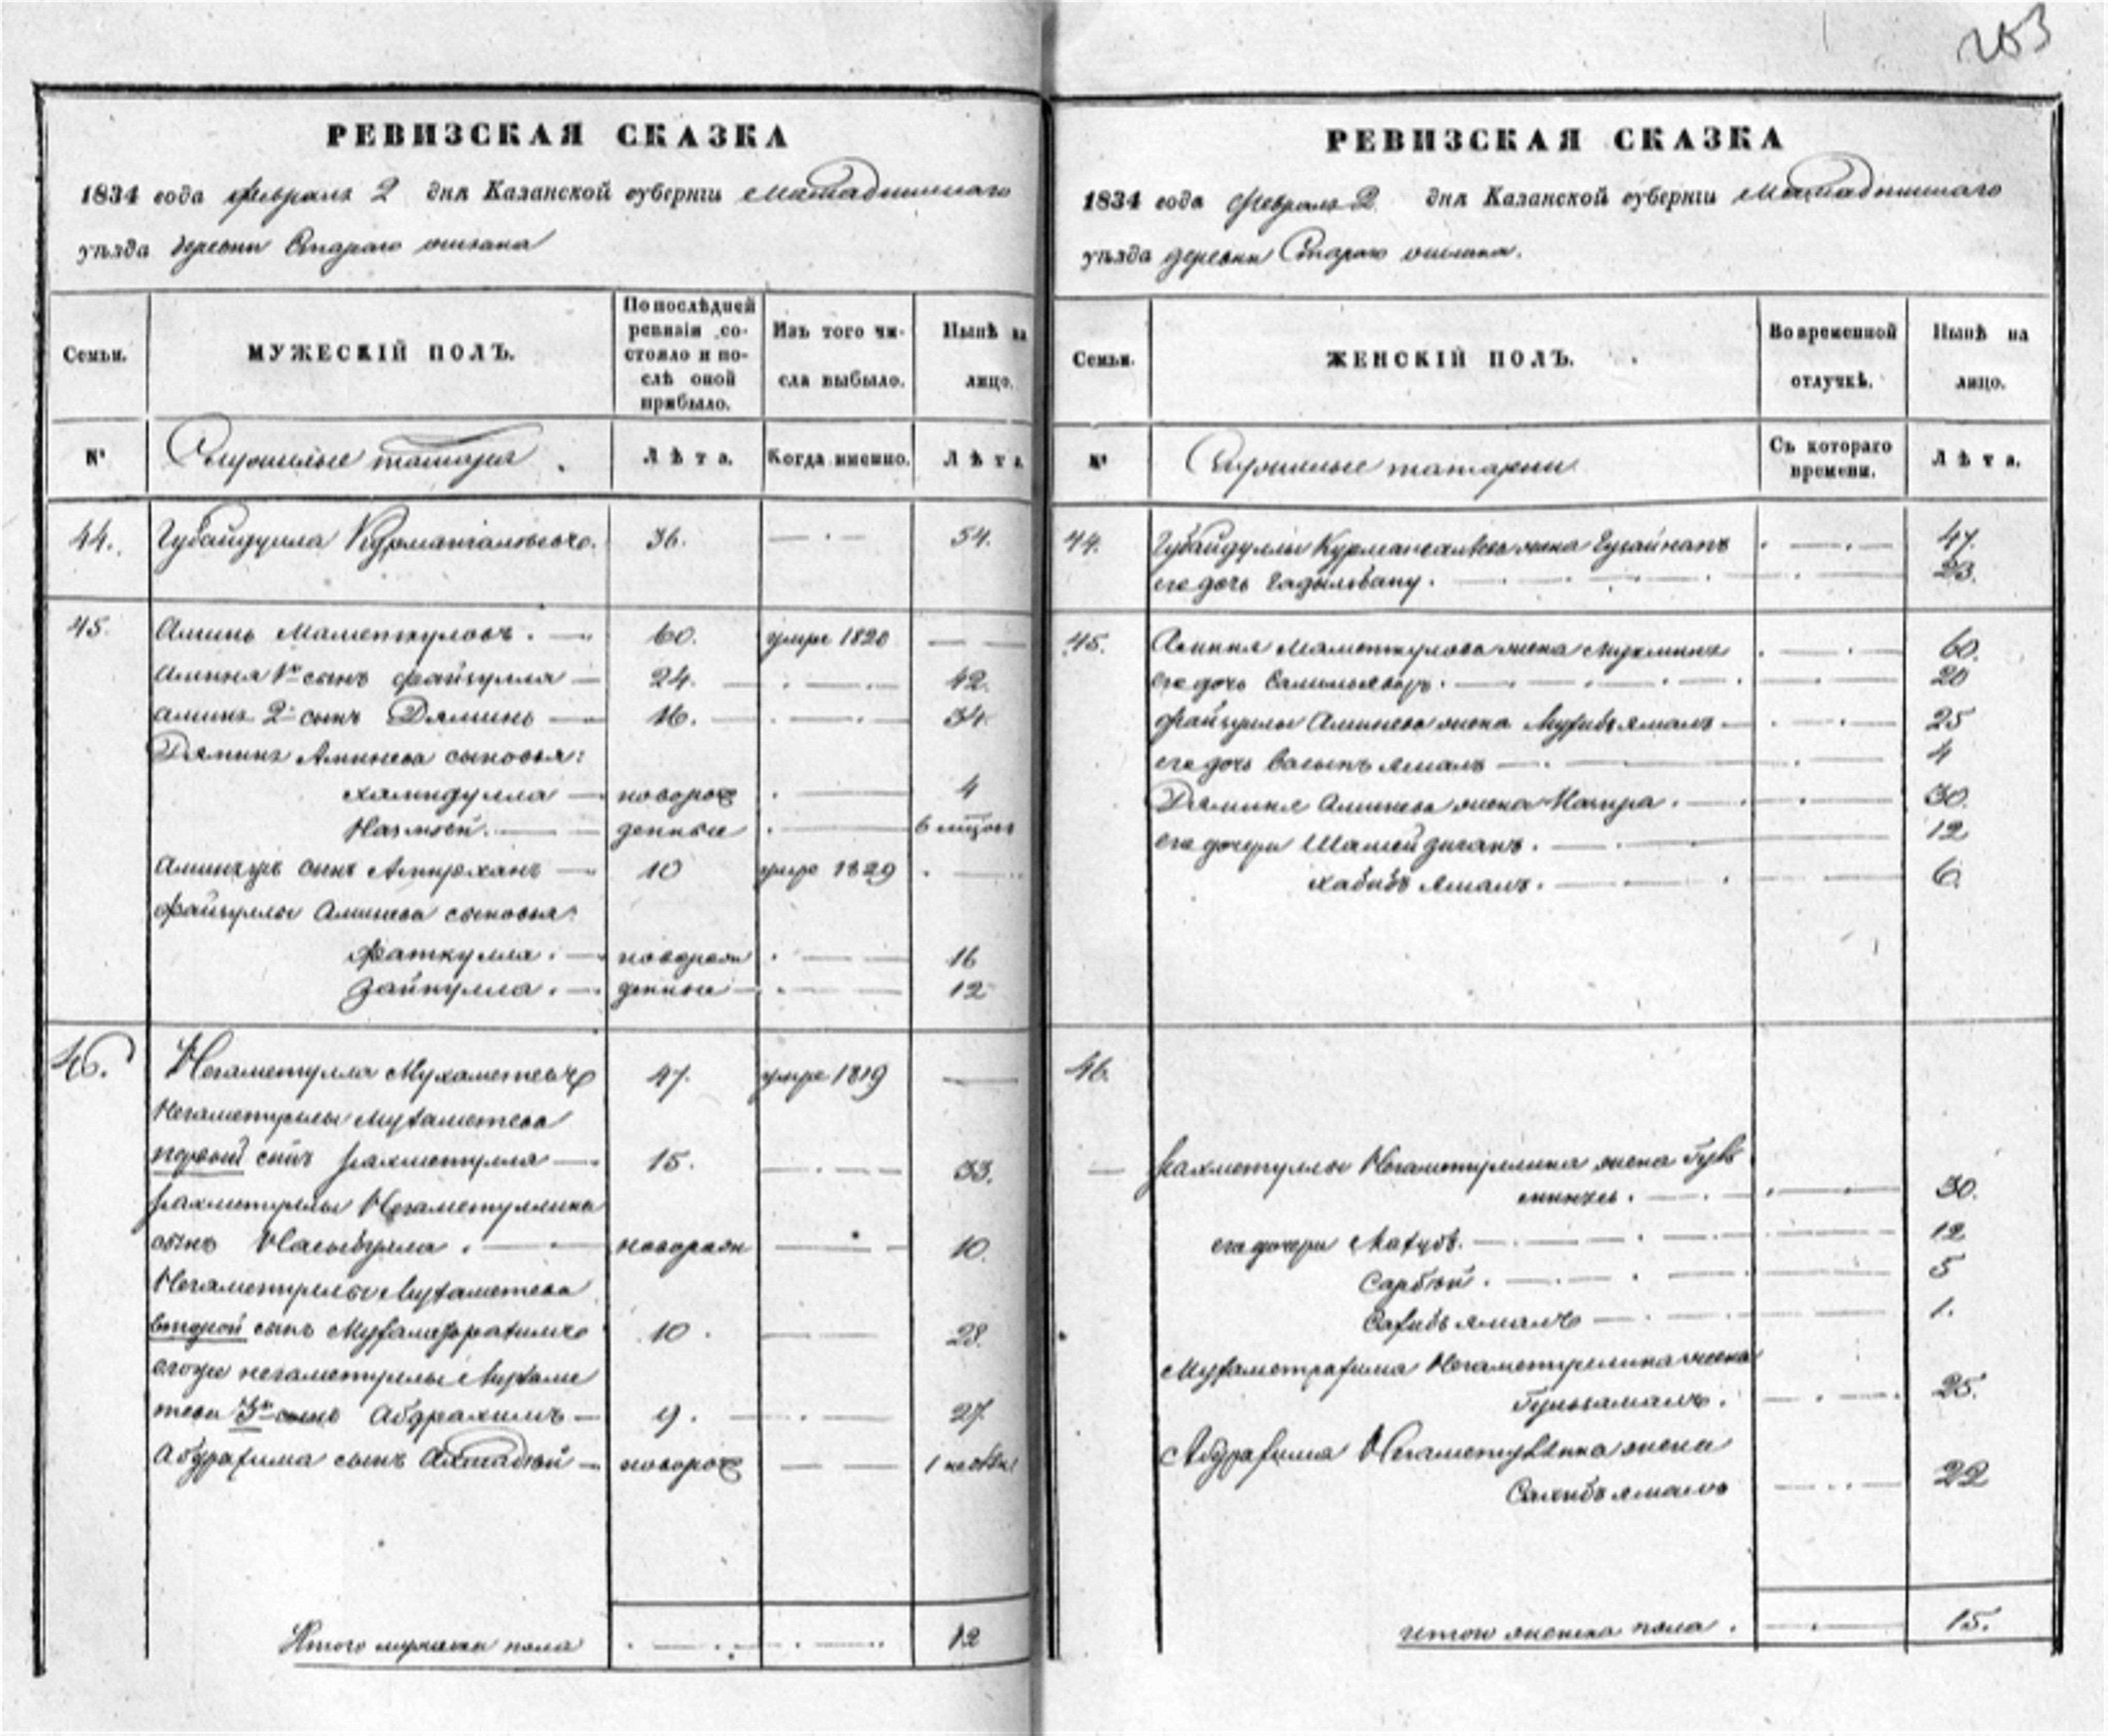 263
РЕВИЗСКАЯ СКАЗКА
1834 года февраля 2 дня Казанской губерніи Мамадышскаго
уѣзда деревни Стараго
Семьи.
МУЖЕСКІЙ ПОЛЪ.
По послѣдней ревизіи со-
стояло и по-
слѣ оной
прибыло.
Изъ того чи-
сла выбыло.
Нынѣ на
лицо.
№
татара
Лѣта.
Когда именно.
Лѣта
44. Губайдулла Курмангалеевъ. 36. 54.
45. Аминь Маметкуловъ. 60. умре 1820
Аминя 1й сынъ Файзулла 24. 42.
Аминя 2й сынъ Дяминь 16. 34.
Дяминя Аминева сыновья:
Хамидулла новорож 4
денные 6 мѣсец
Аминевъ сынъ Амирханъ 10 умре 1829
Файзуллы Аминева сыновья:
Фаткулла. новорож 16
Зайнулла. денные 12
46. Негаметулла Мухаметевъ 47. умре 1819
Негаметуллы Мухаметева
первый сынъ Рахметулла 15. 33.
Рахметуллы Негаметуллина
сынъ Насыбулла. новорож 10.
Негаметуллы Мухаметева
второй сынъ Мухаметрахимъ 10. 28.
его же Негаметуллы Мухаме
тева 3й сынъ Абдрахимъ 9. 27
Абдрахима сынъ новорож 1 недѣл
Итого мужеска пола 12
РЕВИЗСКАЯ СКАЗКА
1834 года февраля 2 дня Казанской губерніи Мамадышскаго
уѣзда деревни Стараго
Семьи.
ЖЕНСКІЙ ПОЛЪ.
Во временной
отлучкѣ.
Нынѣ на
лицо.
№
татарки
Съ котораго
времени.
Лѣта.
44. Губайдуллы Курмангалеева жена 47.
его дочь 23.
45. Аминя Маметкулова жена 60.
его дочь 20
Файзуллы Аминева жена 25
его дочь 4
Дяминя Аминева жена 30.
его дочери 12
Хабибъ Ямалъ. 6.
46.
Рахметуллы Негаметуллина жена Гуль
30.
его дочери 12
Сарбюй. 5
Сахибъ ямалъ 1.
Мухаметрахима Негаметуллина жена
Гульзамалъ. 25.
Абдрахима Негаметуллина жена
Сахибъ ямалъ 22
итого женска пола. 15.